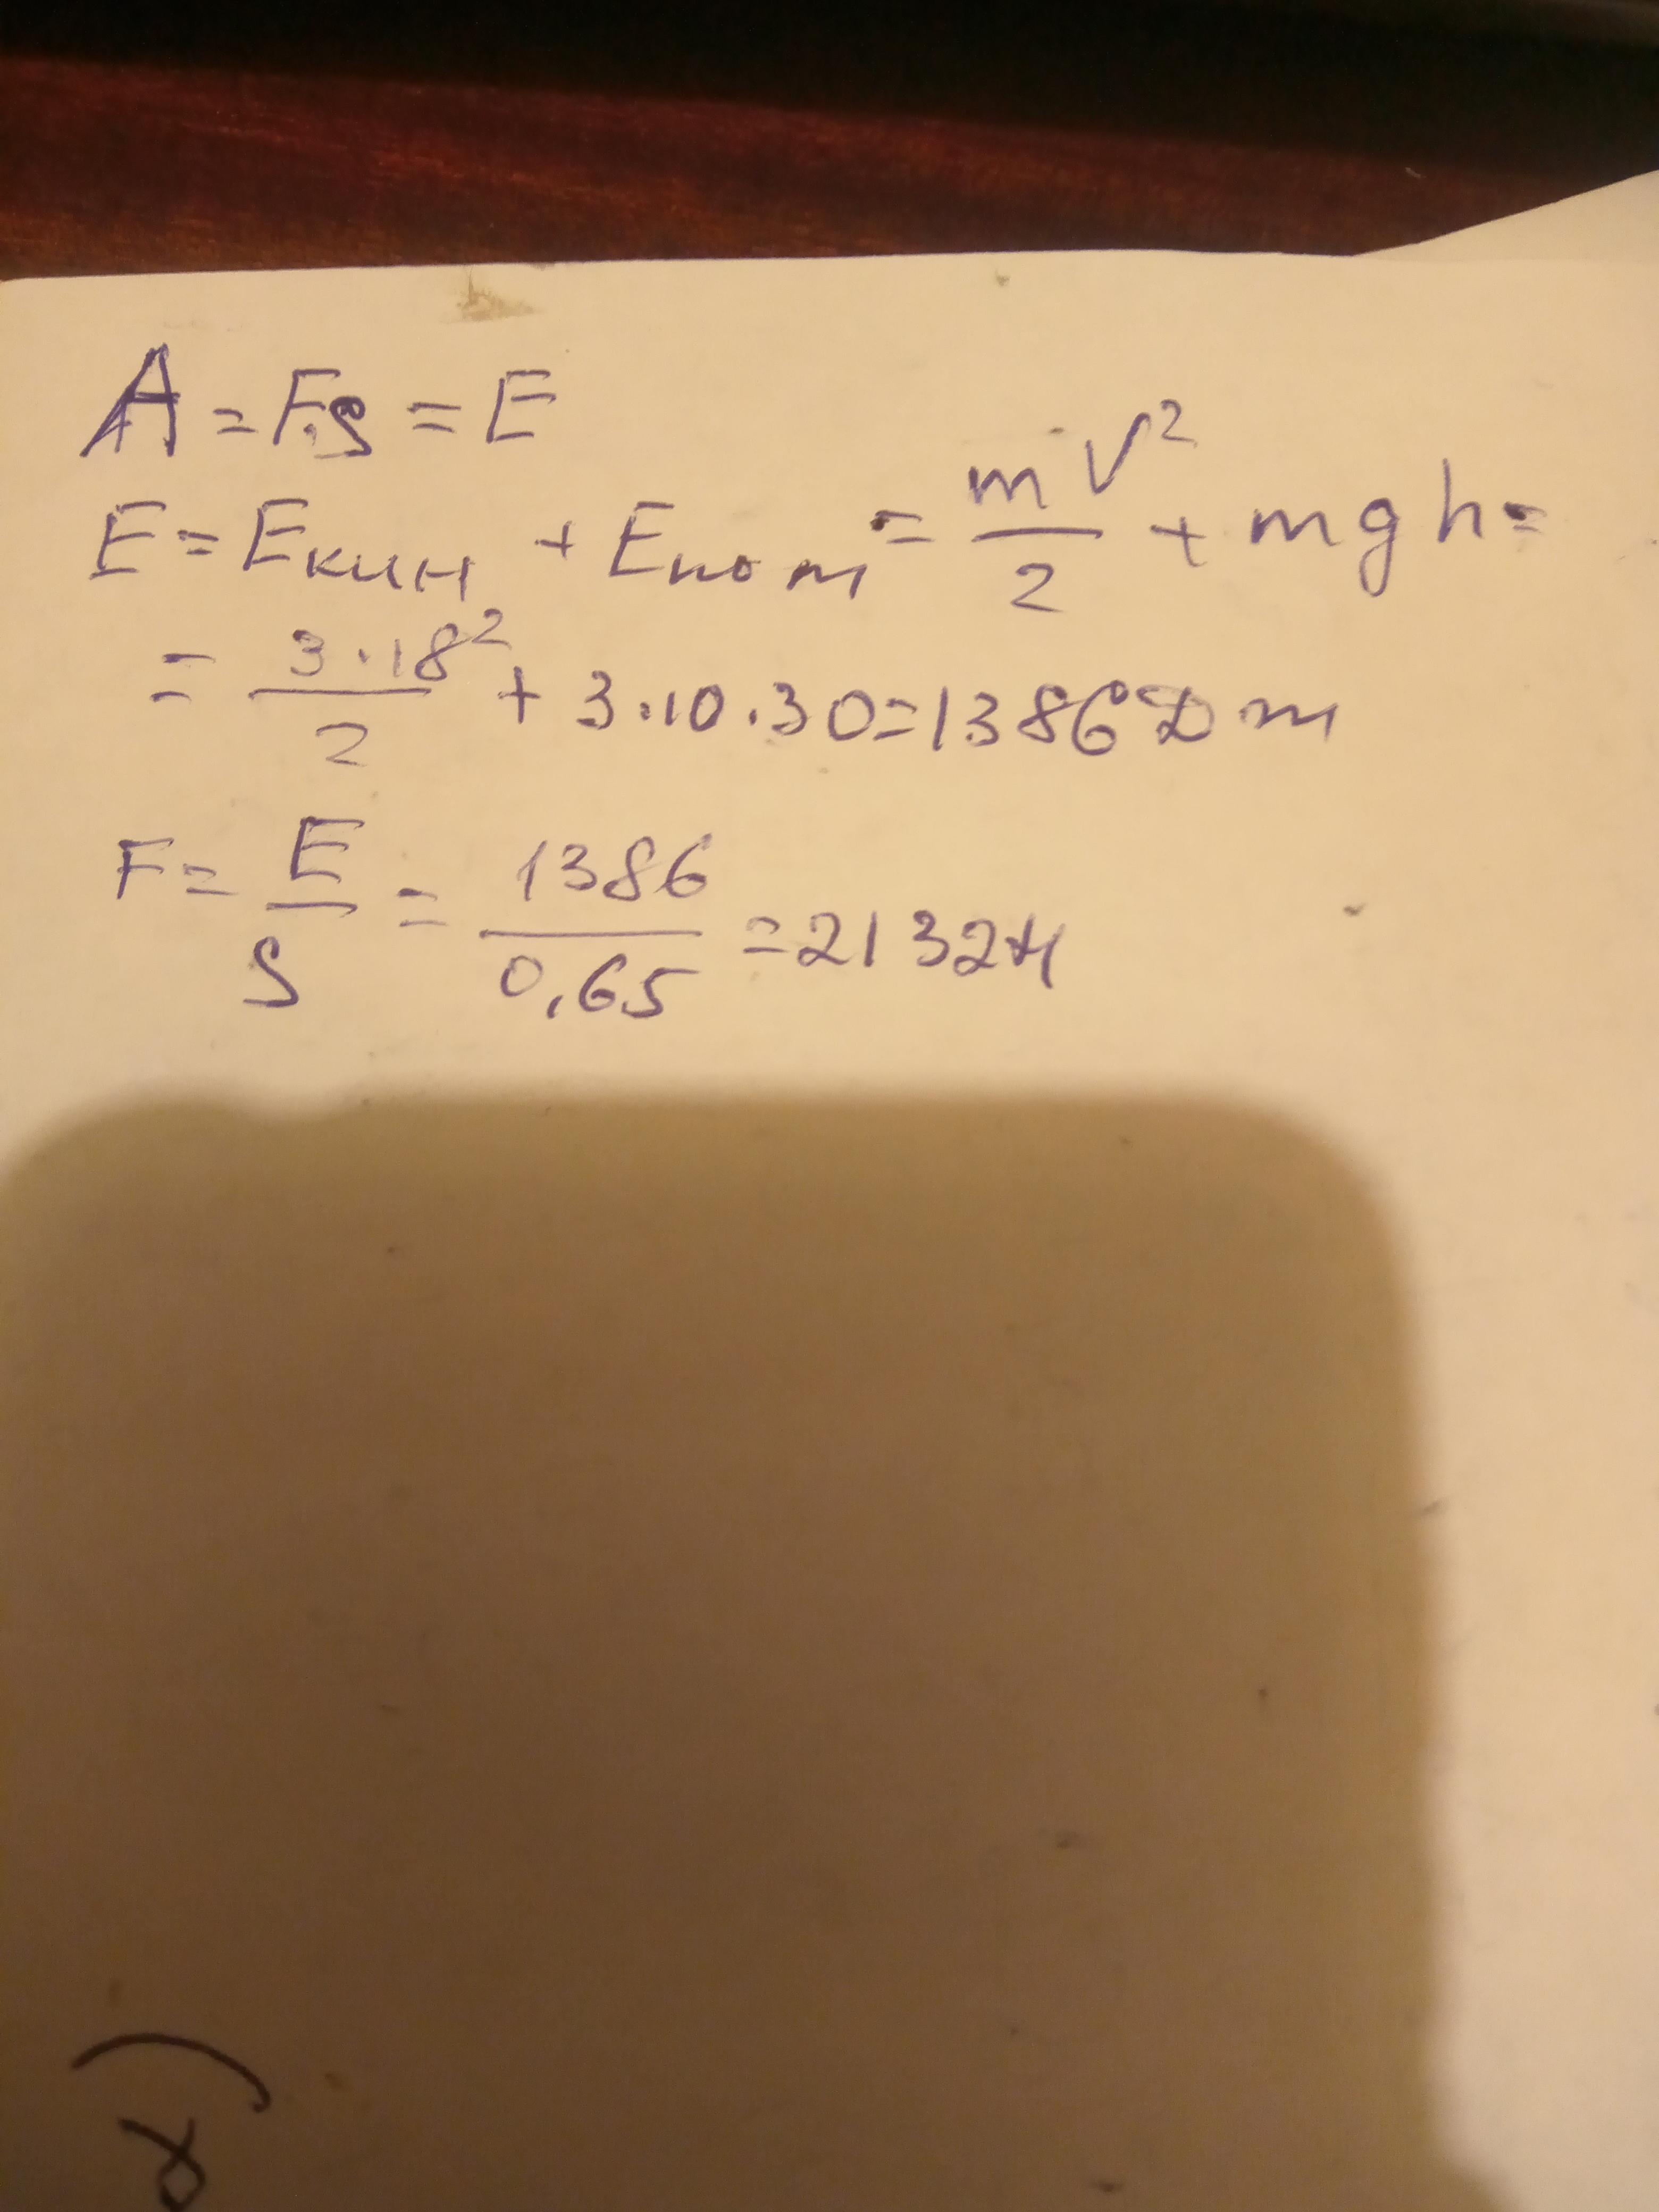 A = F·S = E
E = Eкин + Eпот = mV²/2 + mgh =
= 3·18²/2 + 3·10·30 = 1386 Дж
F = E/S = 1386/0,65 = 2132 Н